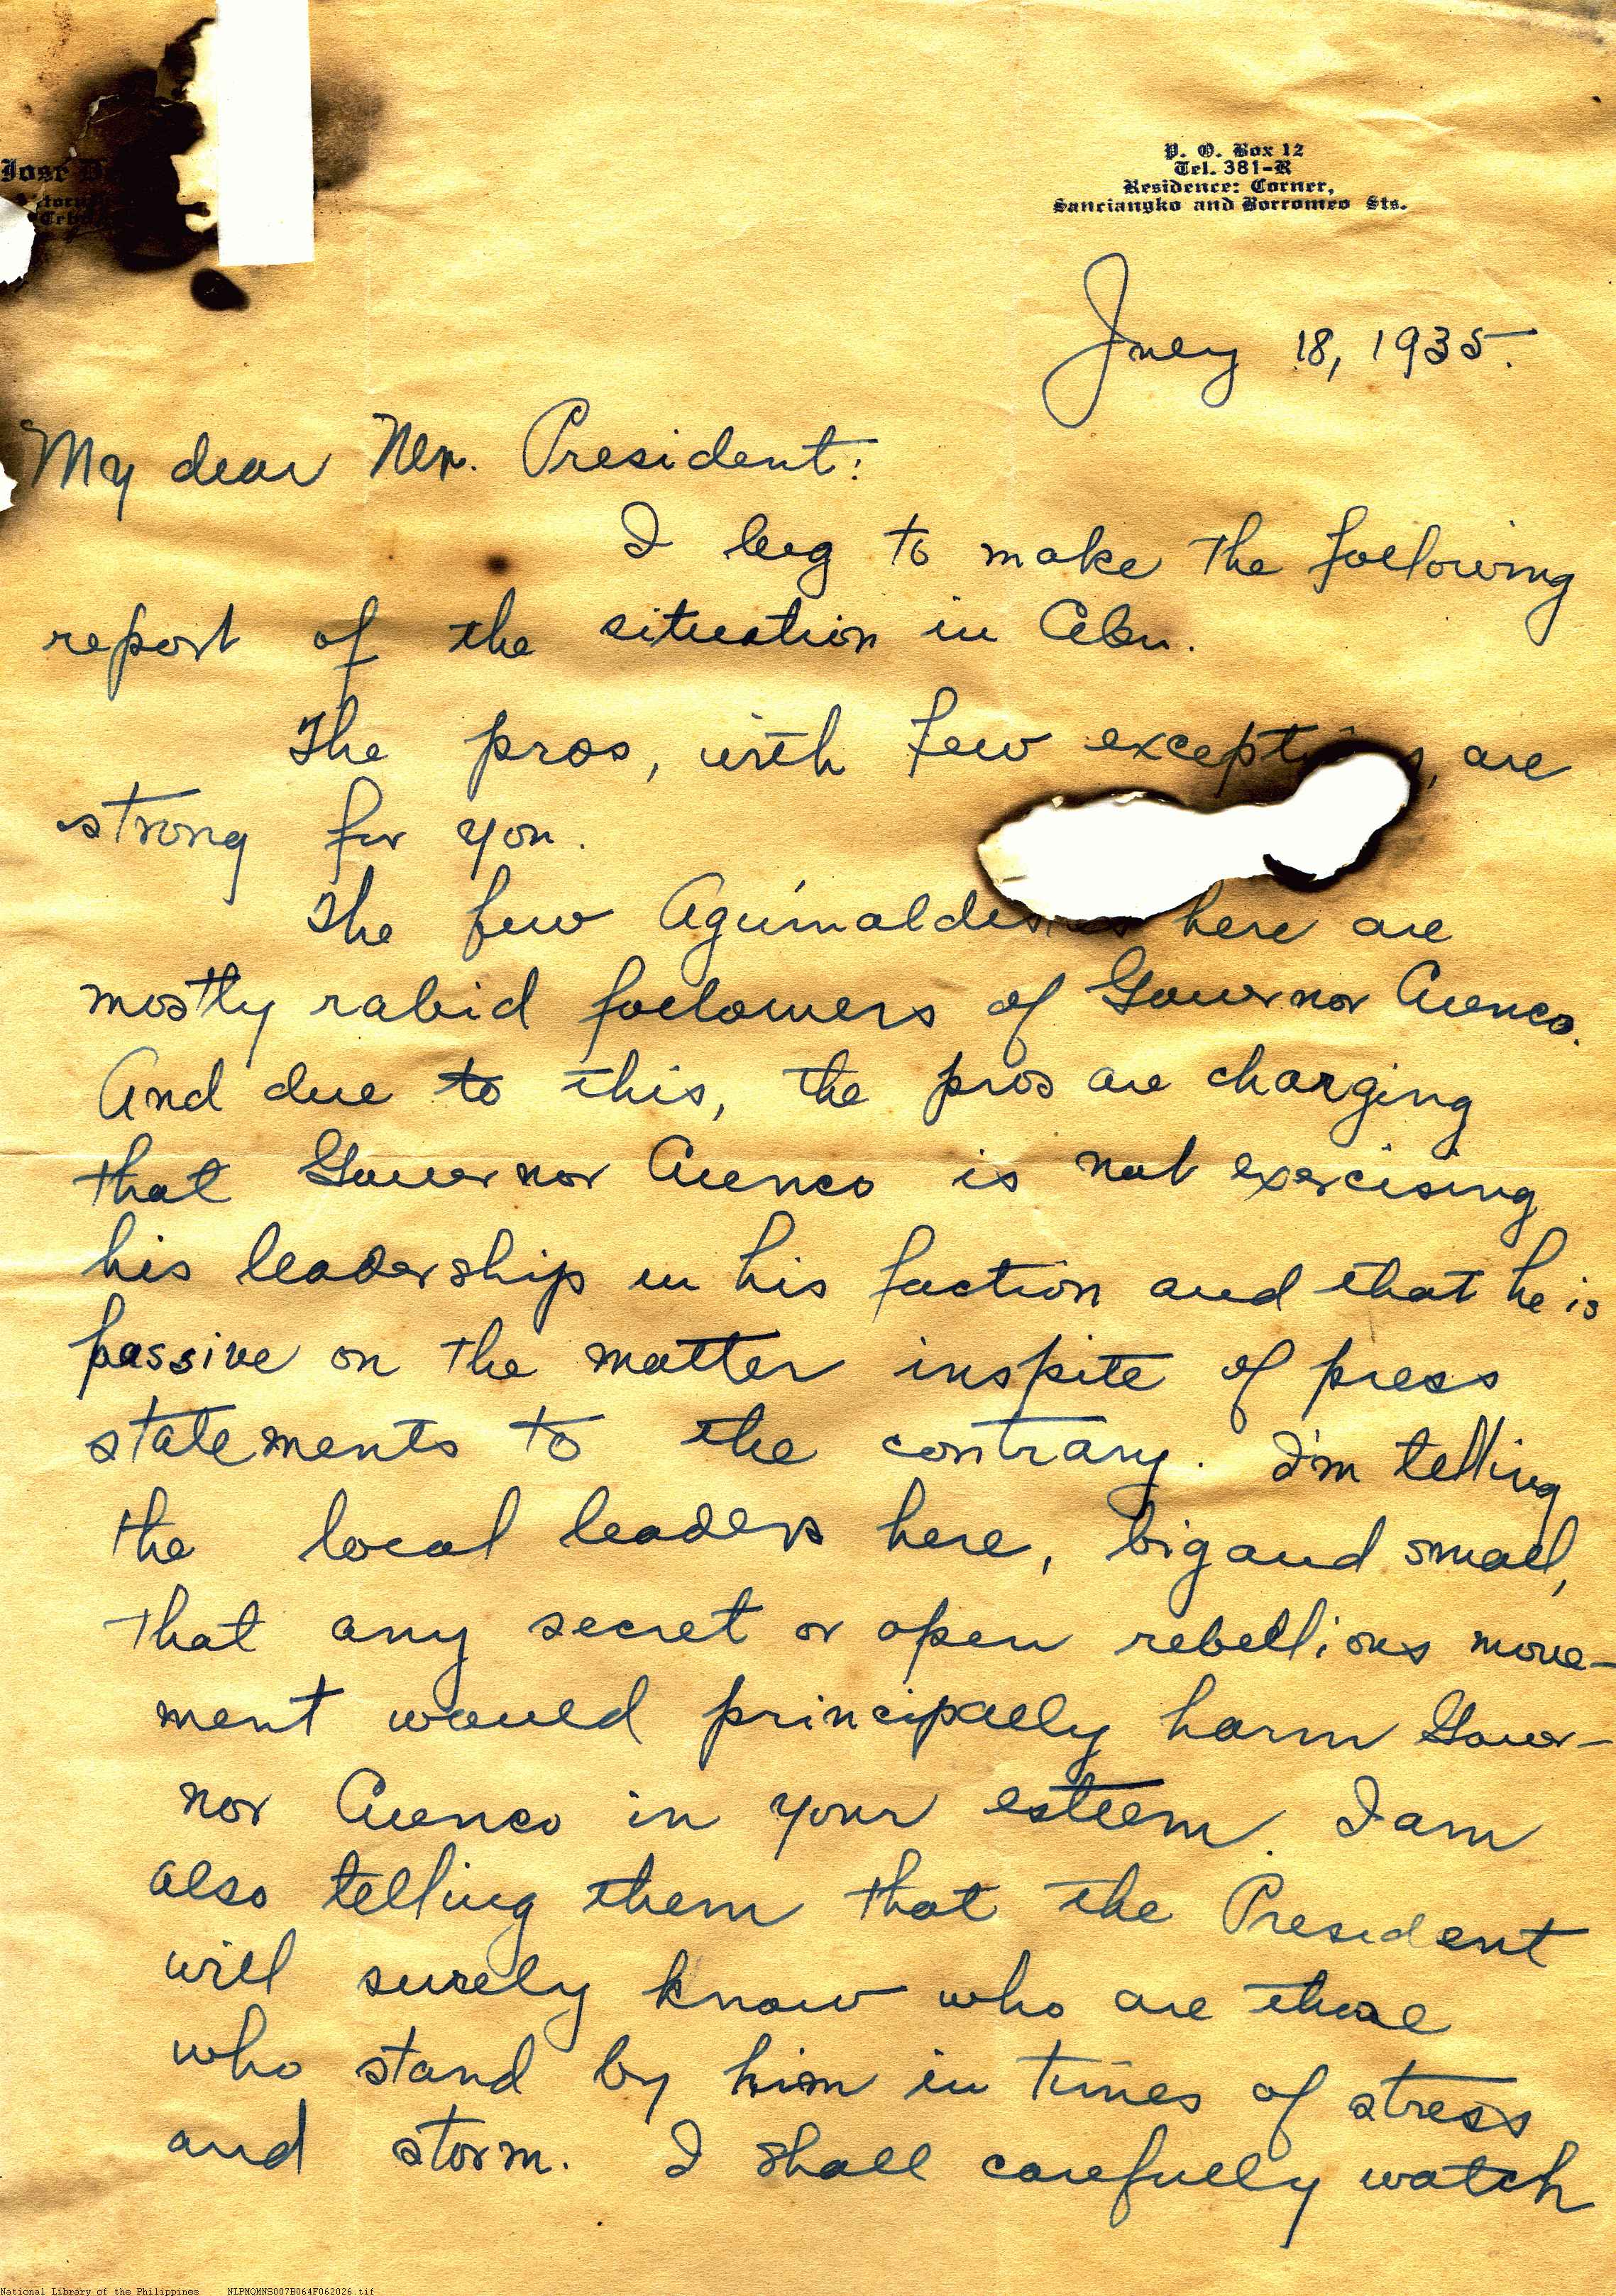 José D
torn
Ceb
P. O. Box 12
Tel. 381-R
Residence: Corner,
Sanciangko and Borromeo Sts.
July 18, 1935.
My dear Mr. President:
I beg to make the following
report of the situation in Cebu.
The pros, with few exceptions, are
strong for you.
The few Aguinaldistas here are
mostly rabid followers of Governor Cuenco.
And due to this, the pros are charging
that Governor Cuenco is not exercising
his leadership in his faction and that he is
passive on the matter inspite of press
statements to the contrary. I'm telling
the local leaders here, big and small,
that any secret or open rebellious move-
ment would principally harm Gover-
nor Cuenco in your esteem. I am
also telling them that the President
will surely know who are those
who stand by him in times of stress
and storm. I shall carefully watch
National Library of the Philippines NLPMQMNS007B064F062026.tif